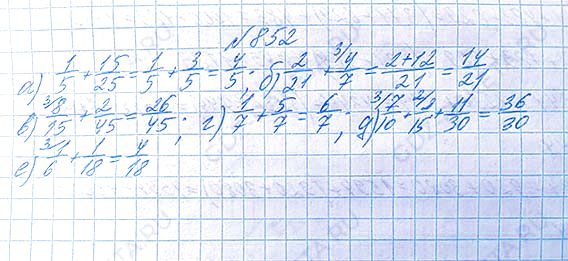 №852
а) 1/5 + 15/25 = 1/5 + 3/5 = 4/5; б) 2/21 + ³⁾4/7 = 2+12/21 = 14/21
в) ³⁾8/15 + 2/45 = 26/45; г) 1/7 + 5/7 = 6/7; д) ³⁾7/10 + ²⁾2/15 + 11/30 = 36/30
е) ³⁾1/6 + 1/18 = 4/18